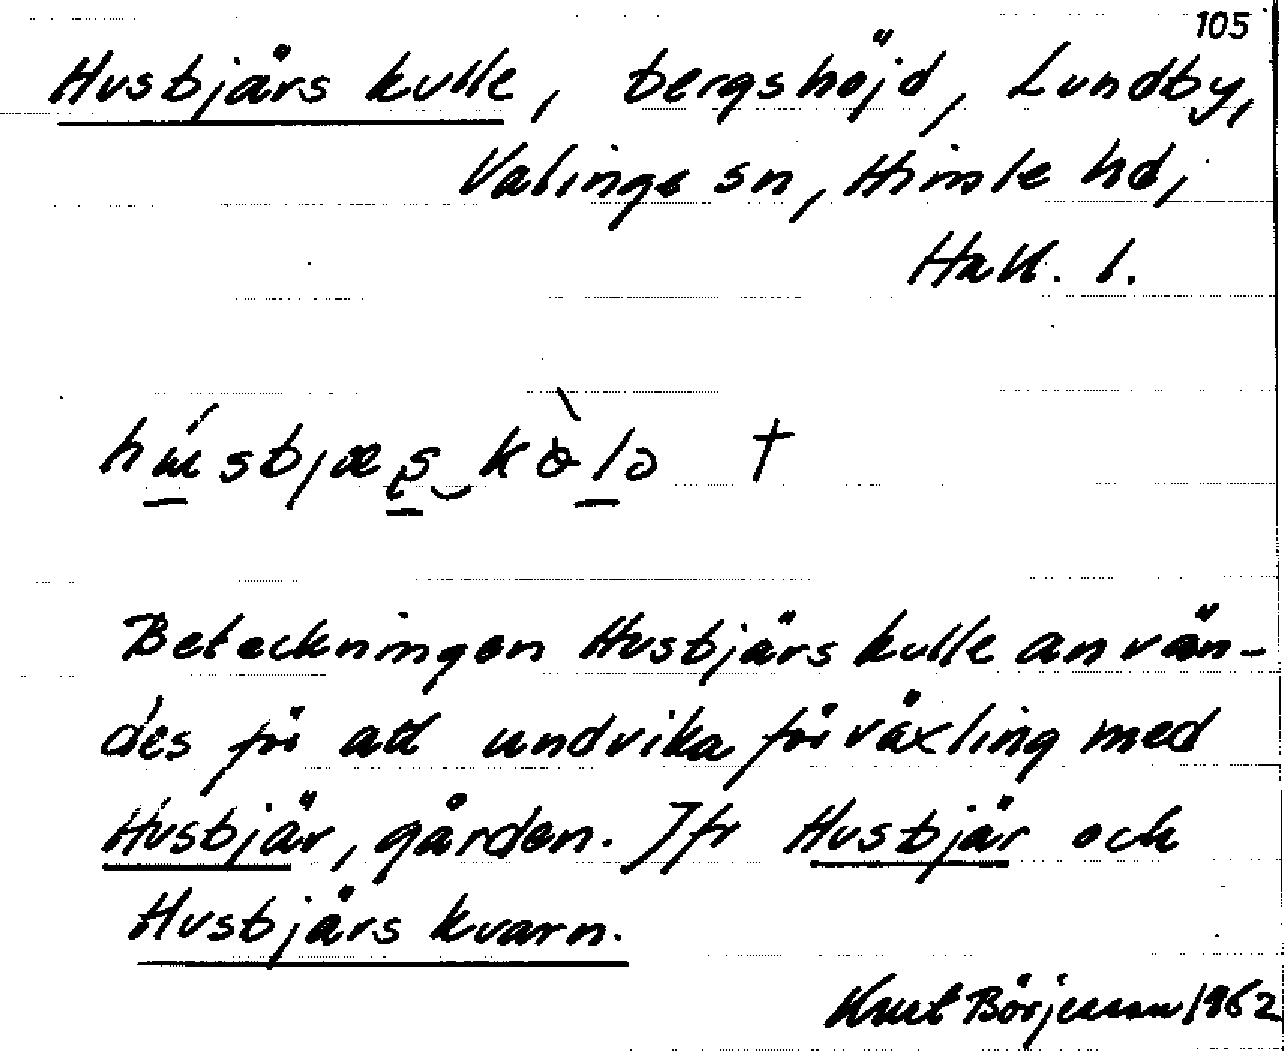 105
Husbjärs kulle, bergshöjd, Lundby,
Valinge sn, Himle hd,
Hall. l.
Beteckningen Husbjärs kulle använ-
des för att undvika förväxling med
Husbjär, gården. Jfr Husbjär och
Husbjärs kvarn.
Knut Börjesson 1962